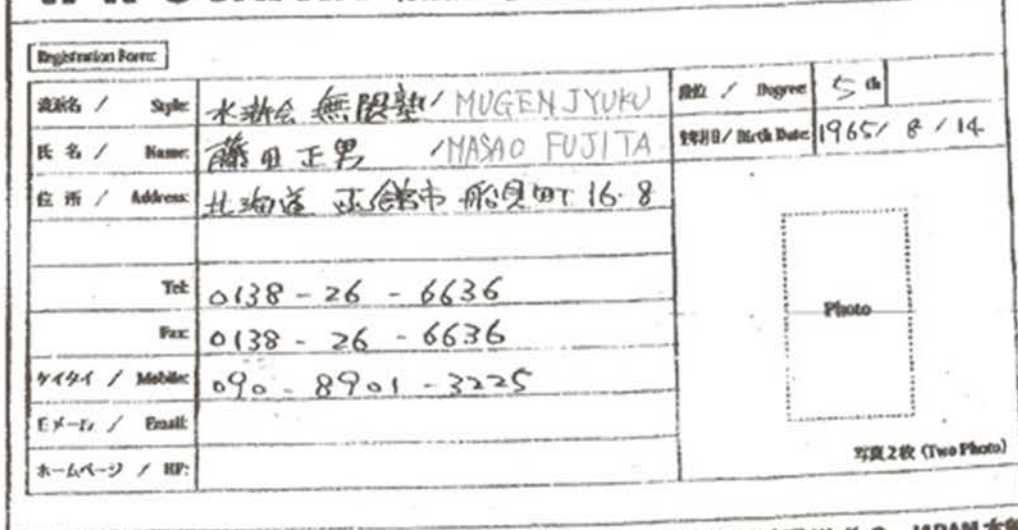 Registration Form:
流派名 / Style: 水滸会 無限塾 / MUGEN JYUKU
段位 / Degree 5 th
氏 名 / Name: 藤田正男 / MASAO FUJITA
生年月日 / Birth Date: 1965 / 8 / 14
住 所 / Address: 北海道 函館市 船見町 16-8
Tel: 0138 - 26 - 6636
Fax: 0138 - 26 - 6636
Photo
ケイタイ / Mobile: 090 - 8901 - 3225
Eメール / Email:
写真2枚 (Two Photo)
ホームページ / HP:
JAPAN 本部